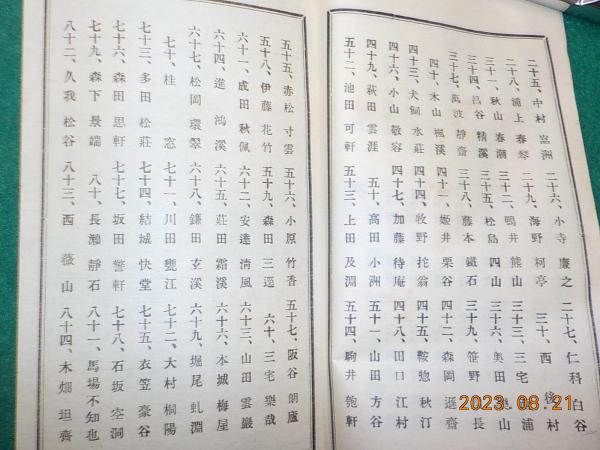 二十五、中村嵓洲 二十六、小寺廉之 二十七、仁科白谷
二十八、浦上春琴 二十九、海野柯亭 三十、西 後村
三十一、秋山春 三十二、鴨井熊山 三十三、三宅 浦
三十四、昌谷精溪 三十五、松島四山 三十六、奥田 山
三十七、萬波靜齋 三十八、藤本鐵石 三十九、笹野 長
四十、木山楓溪 四十一、姫井栗谷 四十二、森岡遜齋
四十三、犬飼水莊 四十四、牧野拕翁 四十五、鞍惣秋汀
四十六、小山敬容 四十七、加藤待庵 四十八、田口江村
四十九、萩田雲涯 五十、高田小洲 五十一、山田方谷
五十二、池田可軒 五十三、上田及淵 五十四、駒井 軒
五十五、赤松寸雲 五十六、小原竹香 五十七、阪谷朗廬
五十八、伊藤花竹 五十九、森田三逕 六十、三宅樂哉
六十一、成田秋佩 六十二、安達清風 六十三、山田雲巖
六十四、進 鴻溪 六十五、莊田霜溪 六十六、本城梅屋
六十七、松岡環翠 六十八、鎌田玄溪 六十九、堀尾虬淵
七十、桂 窓 七十一、川田甕江 七十二、大村桐陽
七十三、多田松莊 七十四、結城快堂 七十五、衣笠豪谷
七十六、森田思軒 七十七、坂田警軒 七十八、石坂空洞
七十九、森下景端 八十、長瀨靜石 八十一、馬場不知也
八十二、久我松谷 八十三、西 薇山 八十四、木畑坦齊
2023.08.21